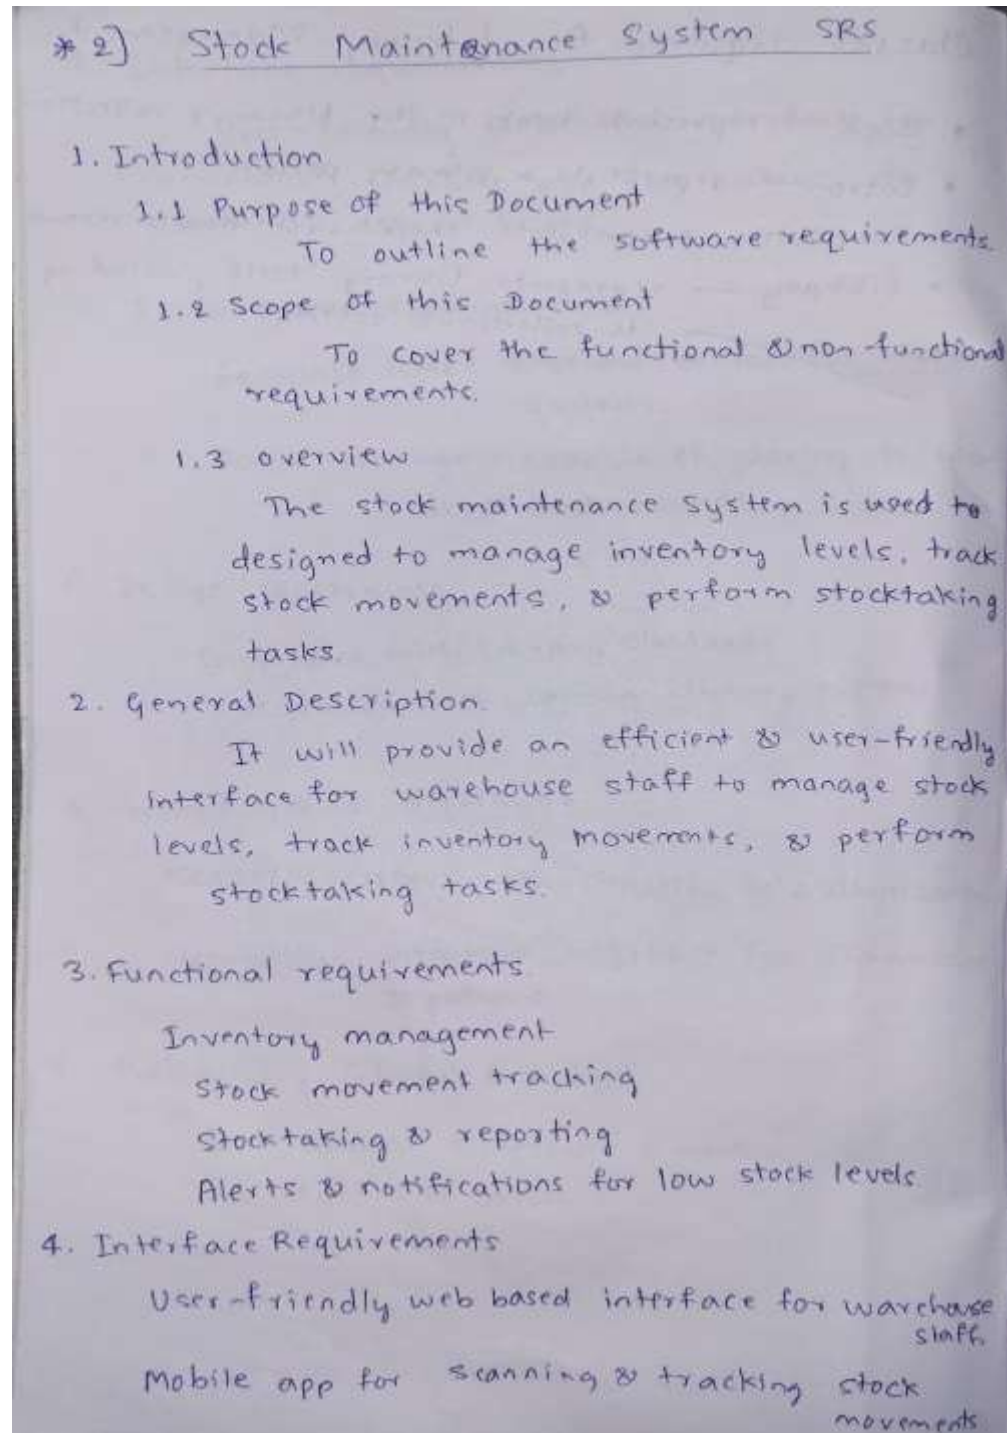 * 2] Stock Maintenance System SRS
1. Introduction
1.1 Purpose of this Document
To outline the software requirements.
1.2 Scope of this Document
To cover the functional & non-functional
requirements.
1.3 overview
The stock maintenance system is used to
designed to manage inventory levels, track
stock movements, & perform stocktaking
tasks.
2. General Description.
It will provide an efficient & user-friendly
interface for warehouse staff to manage stock
levels, track inventory movements, & perform
stocktaking tasks.
3. Functional requirements
Inventory management
Stock movement tracking
Stocktaking & reporting
Alerts & notifications for low stock levels
4. Interface Requirements
User-friendly web based interface for warehouse
staff.
Mobile app for scanning & tracking stock
movements